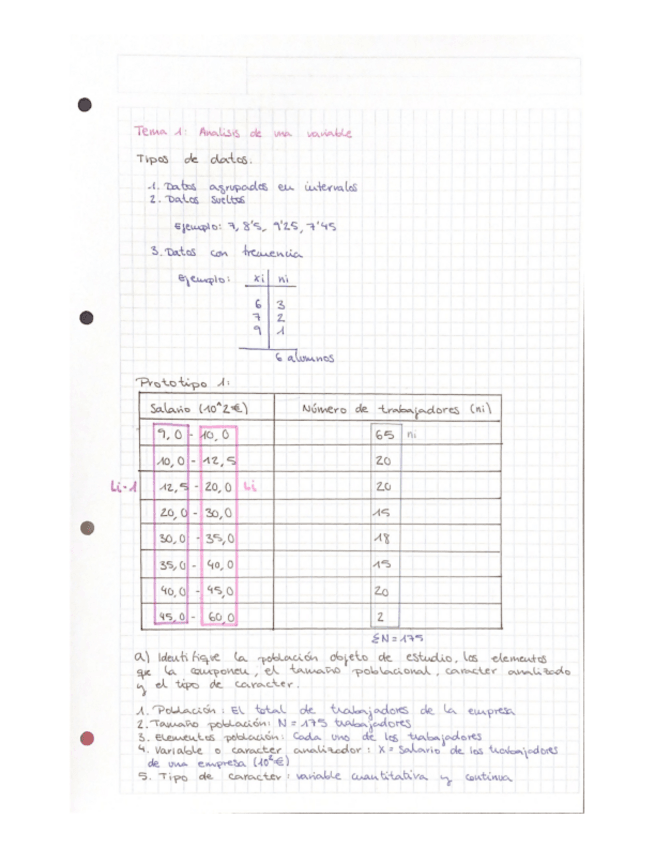 Tema 1: Analisis de una variable
Tipos de datos.
1. Datos agrupados en intervalos
2. Datos sueltos
Ejemplo: 7, 8'5, 9'25, 7'45
3. Datos con frecuencia
Ejemplo: xi ni
6 3
7 2
9 1
6 alumnos
Prototipo 1:
Salario (10^2€) Número de trabajadores (ni)
9,0 - 10,0 65 ni
10,0 - 12,5 20
Li-1 12,5 - 20,0 Li 20
20,0 - 30,0 15
30,0 - 35,0 18
35,0 - 40,0 15
40,0 - 45,0 20
45,0 - 60,0 2
ΣN = 175
a) Identifique la población objeto de estudio, los elementos
que la componen, el tamaño poblacional, caracter analizado
y el tipo de caracter.
1. Población: El total de trabajadores de la empresa
2. Tamaño población: N = 175 trabajadores
3. Elementos población: Cada uno de los trabajadores
4. Variable o caracter analizador: X = Salario de los trabajadores
de una empresa (10²€)
5. Tipo de caracter: variable cuantitativa y continua